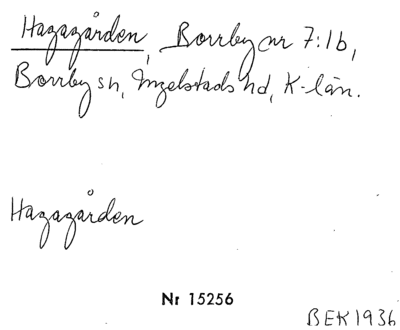 Hagagården, Borrby nr 7:1b,
Borrby sn, Ingelstads hd, K-län.
Hagagården
Nr 15256
BEK1936